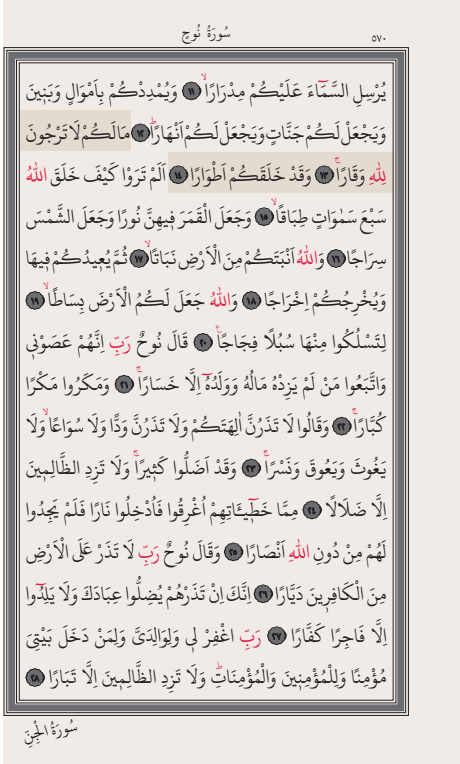 سُورَةُ نُوحٍ
٥٧٠
يُرْسِلِ السَّمَٓاءَ عَلَيْكُمْ مِدْرَارًاۙ ﴿١١﴾ وَيُمْدِدْكُمْ بِاَمْوَالٍ وَبَن۪ينَ
وَيَجْعَلْ لَكُمْ جَنَّاتٍ وَيَجْعَلْ لَكُمْ اَنْهَارًاۜ ﴿١٢﴾ مَا لَكُمْ لَا تَرْجُونَ
لِلّٰهِ وَقَارًاۚ ﴿١٣﴾ وَقَدْ خَلَقَكُمْ اَطْوَارًا ﴿١٤﴾ اَلَمْ تَرَوْا كَيْفَ خَلَقَ اللّٰهُ
سَبْعَ سَمٰوَاتٍ طِبَاقًاۙ ﴿١٥﴾ وَجَعَلَ الْقَمَرَ ف۪يهِنَّ نُورًا وَجَعَلَ الشَّمْسَ
سِرَاجًا ﴿١٦﴾ وَاللّٰهُ اَنْبَتَكُمْ مِنَ الْاَرْضِ نَبَاتًاۙ ﴿١٧﴾ ثُمَّ يُع۪يدُكُمْ ف۪يهَا
وَيُخْرِجُكُمْ اِخْرَاجًا ﴿١٨﴾ وَاللّٰهُ جَعَلَ لَكُمُ الْاَرْضَ بِسَاطًاۙ ﴿١٩﴾
لِتَسْلُكُوا مِنْهَا سُبُلًا فِجَاجًا۟ ﴿٢٠﴾ قَالَ نُوحٌ رَبِّ اِنَّهُمْ عَصَوْن۪ي
وَاتَّبَعُوا مَنْ لَمْ يَزِدْهُ مَالُهُ وَوَلَدُهُٓ اِلَّا خَسَارًاۚ ﴿٢١﴾ وَمَكَرُوا مَكْرًا
كُبَّارًاۚ ﴿٢٢﴾ وَقَالُوا لَا تَذَرُنَّ اٰلِهَتَكُمْ وَلَا تَذَرُنَّ وَدًّا وَلَا سُوَاعًاۙ وَلَا
يَغُوثَ وَيَعُوقَ وَنَسْرًاۚ ﴿٢٣﴾ وَقَدْ اَضَلُّوا كَث۪يرًاۚ وَلَا تَزِدِ الظَّالِم۪ينَ
اِلَّا ضَلَالًا ﴿٢٤﴾ مِمَّا خَط۪ٓيـَٔاتِهِمْ اُغْرِقُوا فَاُدْخِلُوا نَارًا فَلَمْ يَجِدُوا
لَهُمْ مِنْ دُونِ اللّٰهِ اَنْصَارًا ﴿٢٥﴾ وَقَالَ نُوحٌ رَبِّ لَا تَذَرْ عَلَى الْاَرْضِ
مِنَ الْكَافِر۪ينَ دَيَّارًا ﴿٢٦﴾ اِنَّكَ اِنْ تَذَرْهُمْ يُضِلُّوا عِبَادَكَ وَلَا يَلِدُٓوا
اِلَّا فَاجِرًا كَفَّارًا ﴿٢٧﴾ رَبِّ اغْفِرْ ل۪ي وَلِوَالِدَيَّ وَلِمَنْ دَخَلَ بَيْتِيَ
مُؤْمِنًا وَلِلْمُؤْمِن۪ينَ وَالْمُؤْمِنَاتِۜ وَلَا تَزِدِ الظَّالِم۪ينَ اِلَّا تَبَارًا ﴿٢٨﴾
سُورَةُ الْجِنِّ